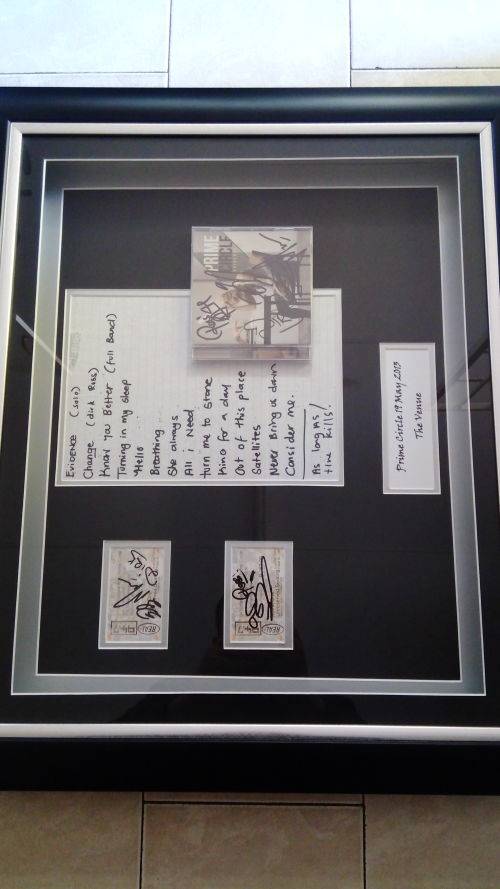 PRIME
CIRCLE
EVIDENCE (solo)
Change (dirk & Ross)
Know you Better (full Band)
Turning in my sleep
Hello
Breathing
She always
All i Need
turn me to stone
King for a day
Out of this place
Satellites
Never Bring us down
Consider me.
As long as
time kills!
Prime Circle 19 May 2013
The Venue
REAL
REAL